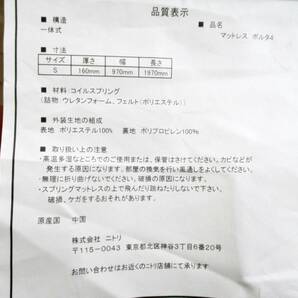 品質表示
■ 構造
一体式
■ 品名
マットレス ボルタ4
■ 寸法
サイズ 厚さ 幅 長さ
S 160mm 970mm 1970mm
■ 材料:コイルスプリング
(詰物 ウレタンフォーム、フェルト(ポリエステル))
■ 外装生地の組成
表地 ポリエステル100% 裏地 ポリプロピレン100%
■ 取り扱い上の注意
・高温多湿なところでのご使用または、保管はさけてください。カビなどが
発生する原因になります。部屋の換気を行い風通しをよくしてください。
・無理に折り曲げないでください。破損の原因になります。
・スプリングマットレスの上で飛んだり跳ねたりしないで下さい。
破損、ケガをするおそれがあります。
原産国 中国
株式会社 ニトリ
〒115-0043 東京都北区神谷3丁目6番20号
お問い合わせはお近くのニトリ店舗にて承ります。